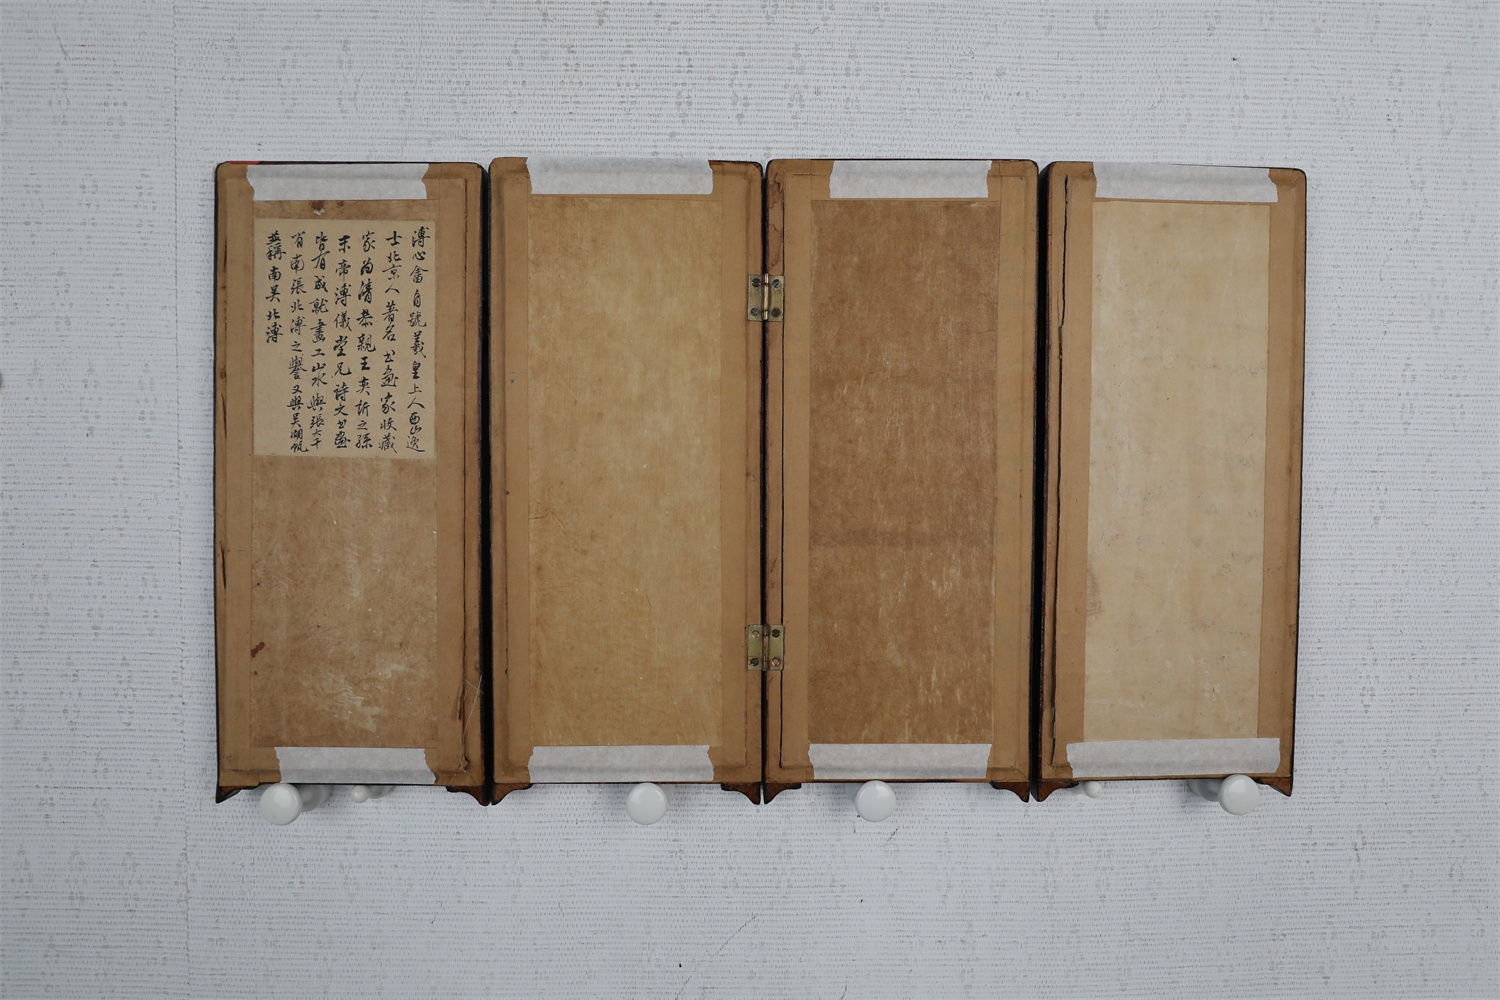 溥心畬自號羲皇上人西山逸
士北京人著名书画家收藏
家为清恭親王奕訢之孫
末帝溥儀堂兄詩文书画
皆有成就畫工山水與張大千
有南張北溥之譽又與吴湖帆
並稱南吴北溥